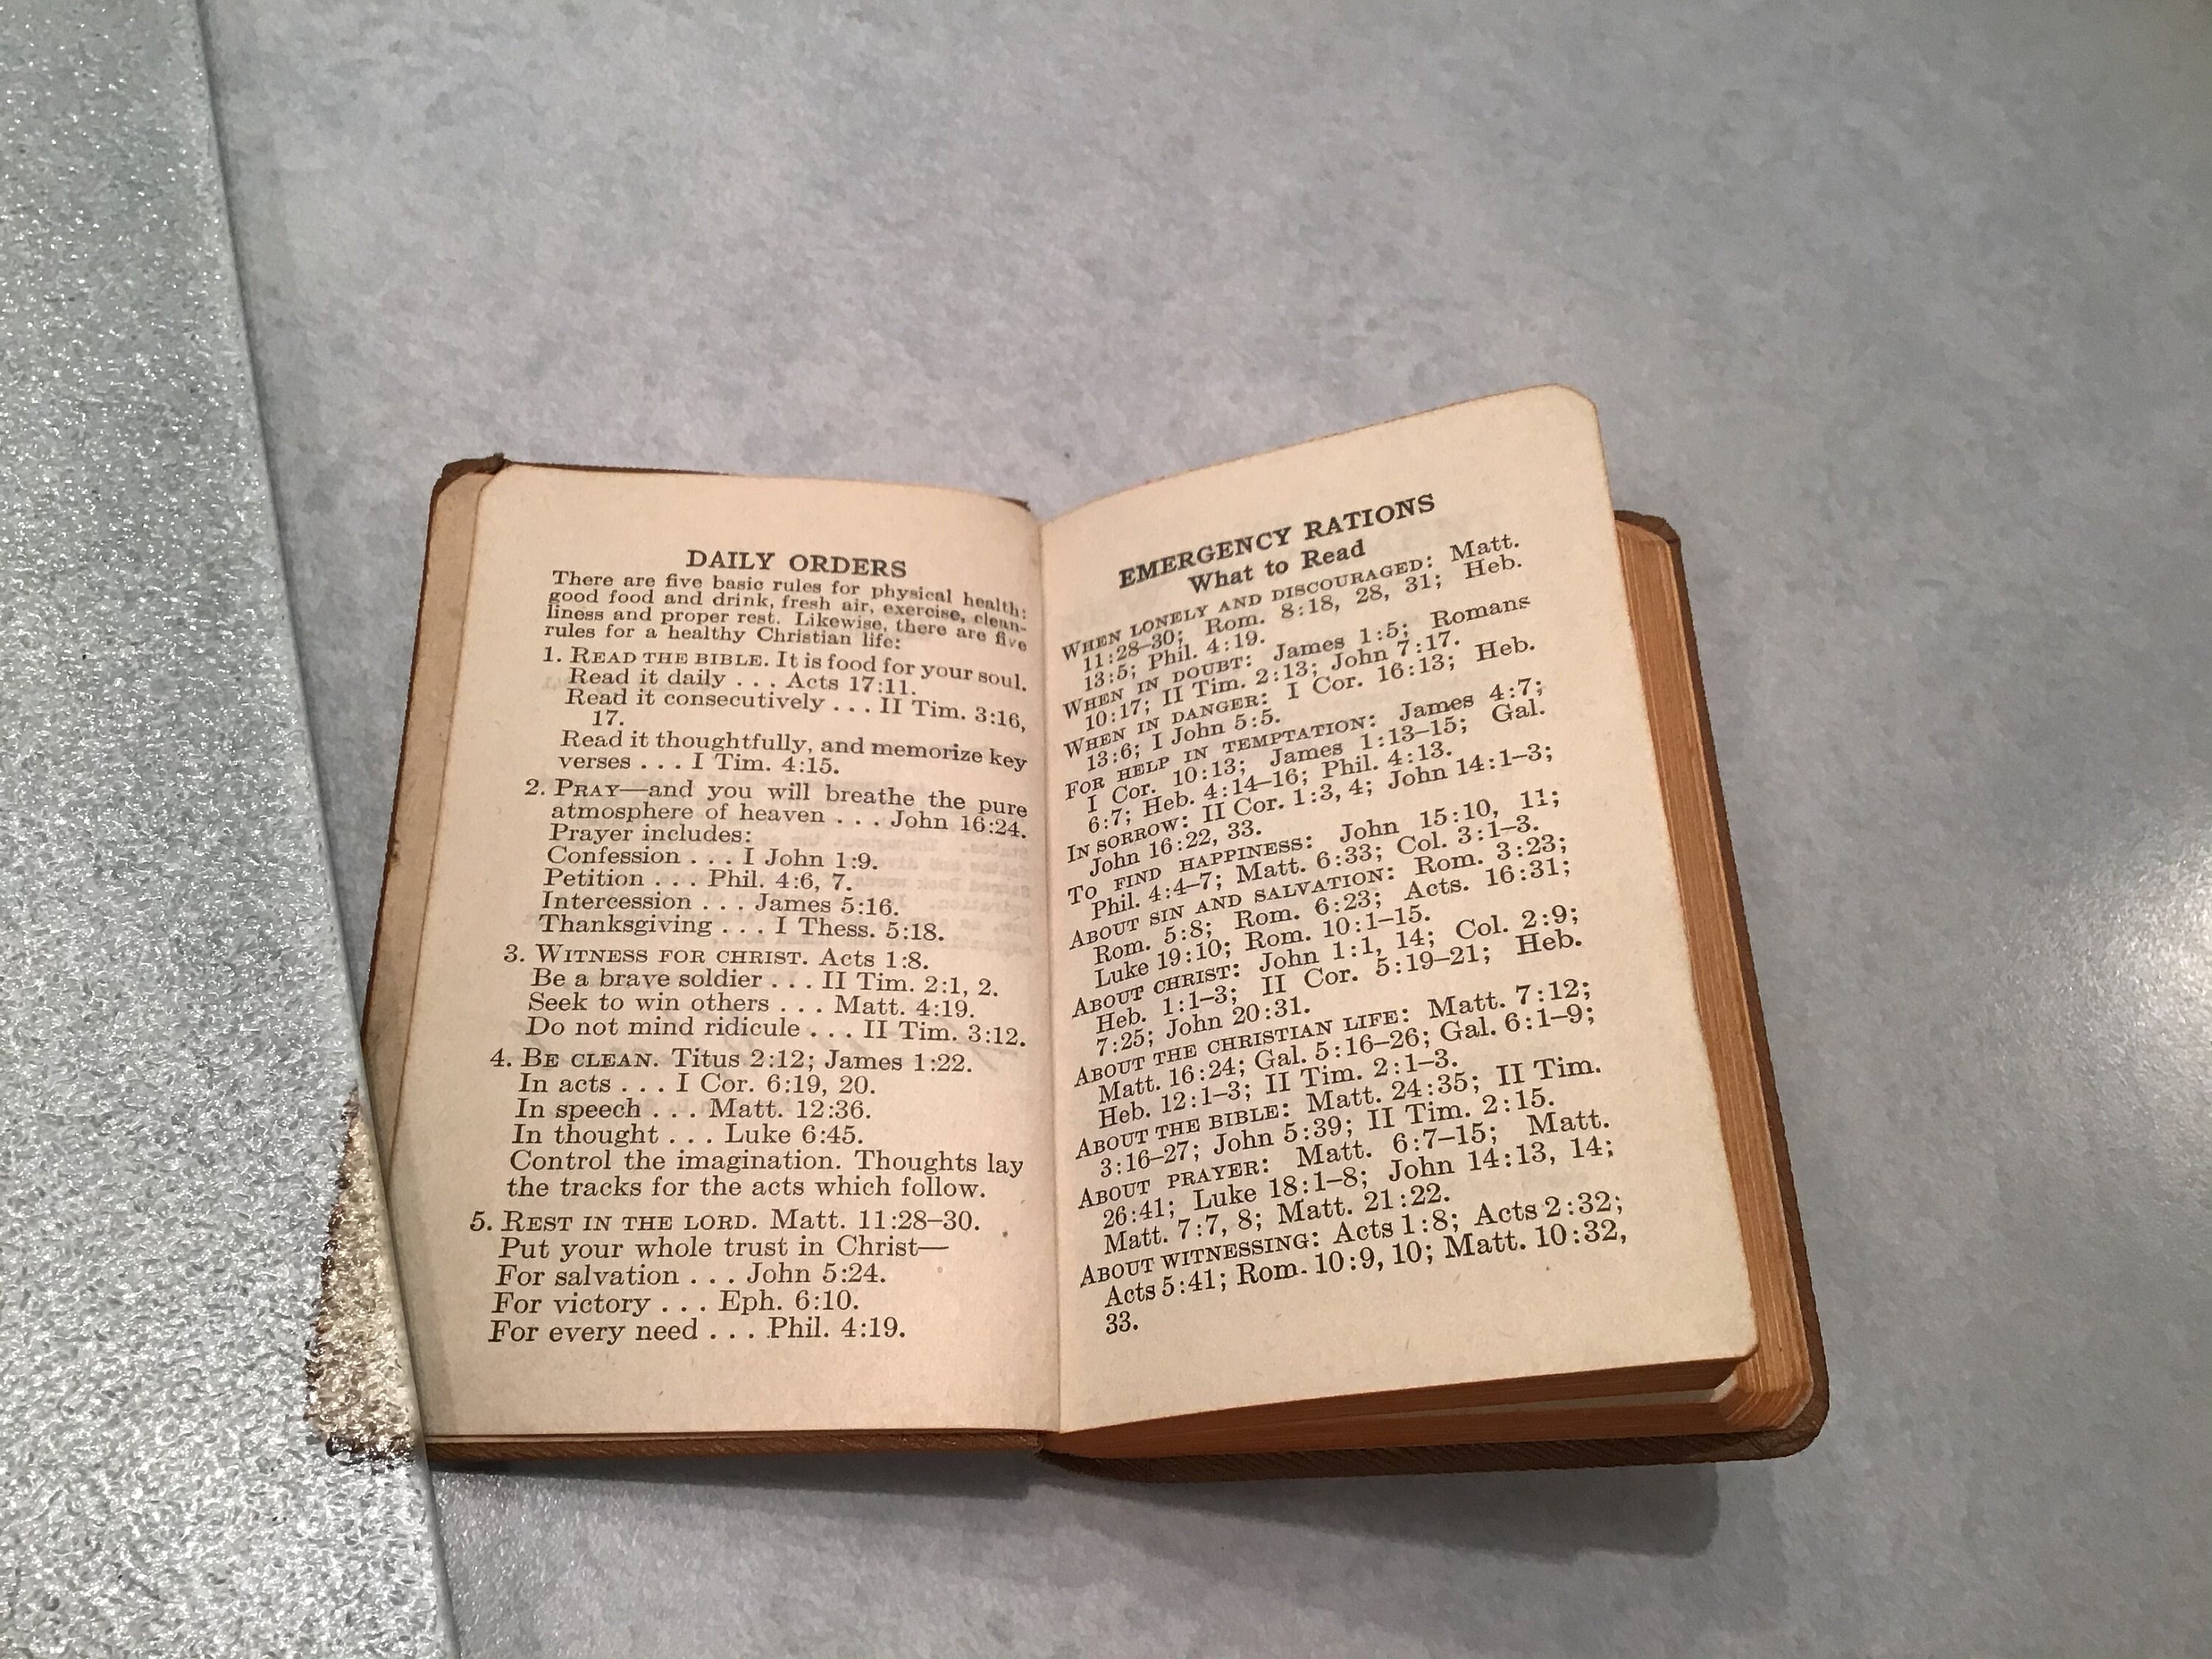 DAILY ORDERS
There are five basic rules for physical health:
good food and drink, fresh air, exercise, clean-
liness and proper rest. Likewise, there are five
rules for a healthy Christian life:
1. READ THE BIBLE. It is food for your soul.
Read it daily . . . Acts 17:11.
Read it consecutively . . . II Tim. 3:16,
17.
Read it thoughtfully, and memorize key
verses . . . I Tim. 4:15.
2. PRAY—and you will breathe the pure
atmosphere of heaven . . . John 16:24.
Prayer includes:
Confession . . . I John 1:9.
Petition . . . Phil. 4:6, 7.
Intercession . . . James 5:16.
Thanksgiving . . . I Thess. 5:18.
3. WITNESS FOR CHRIST. Acts 1:8.
Be a brave soldier . . . II Tim. 2:1, 2.
Seek to win others . . . Matt. 4:19.
Do not mind ridicule . . . II Tim. 3:12.
4. BE CLEAN. Titus 2:12; James 1:22.
In acts . . . I Cor. 6:19, 20.
In speech . . . Matt. 12:36.
In thought . . . Luke 6:45.
Control the imagination. Thoughts lay
the tracks for the acts which follow.
5. REST IN THE LORD. Matt. 11:28–30.
Put your whole trust in Christ—
For salvation . . . John 5:24.
For victory . . . Eph. 6:10.
For every need . . . Phil. 4:19.
EMERGENCY RATIONS
What to Read
WHEN LONELY AND DISCOURAGED: Matt.
11:28–30; Rom. 8:18, 28, 31; Heb.
13:5; Phil. 4:19.
WHEN IN DOUBT: James 1:5; Romans
10:17; II Tim. 2:13; John 7:17.
WHEN IN DANGER: I Cor. 16:13; Heb.
13:6; I John 5:5.
FOR HELP IN TEMPTATION: James 4:7;
I Cor. 10:13; James 1:13–15; Gal.
6:7; Heb. 4:14–16; Phil. 4:13.
IN SORROW: II Cor. 1:3, 4; John 14:1–3;
John 16:22, 33.
TO FIND HAPPINESS: John 15:10, 11;
Phil. 4:4–7; Matt. 6:33; Col. 3:1–3.
ABOUT SIN AND SALVATION: Rom. 3:23;
Rom. 5:8; Rom. 6:23; Acts. 16:31;
Luke 19:10; Rom. 10:1–15.
ABOUT CHRIST: John 1:1, 14; Col. 2:9;
Heb. 1:1–3; II Cor. 5:19–21; Heb.
7:25; John 20:31.
ABOUT THE CHRISTIAN LIFE: Matt. 7:12;
Matt. 16:24; Gal. 5:16–26; Gal. 6:1–9;
Heb. 12:1–3; II Tim. 2:1–3.
ABOUT THE BIBLE: Matt. 24:35; II Tim.
3:16–27; John 5:39; II Tim. 2:15.
ABOUT PRAYER: Matt. 6:7–15; Matt.
26:41; Luke 18:1–8; John 14:13, 14;
Matt. 7:7, 8; Matt. 21:22.
ABOUT WITNESSING: Acts 1:8; Acts 2:32;
Acts 5:41; Rom. 10:9, 10; Matt. 10:32,
33.